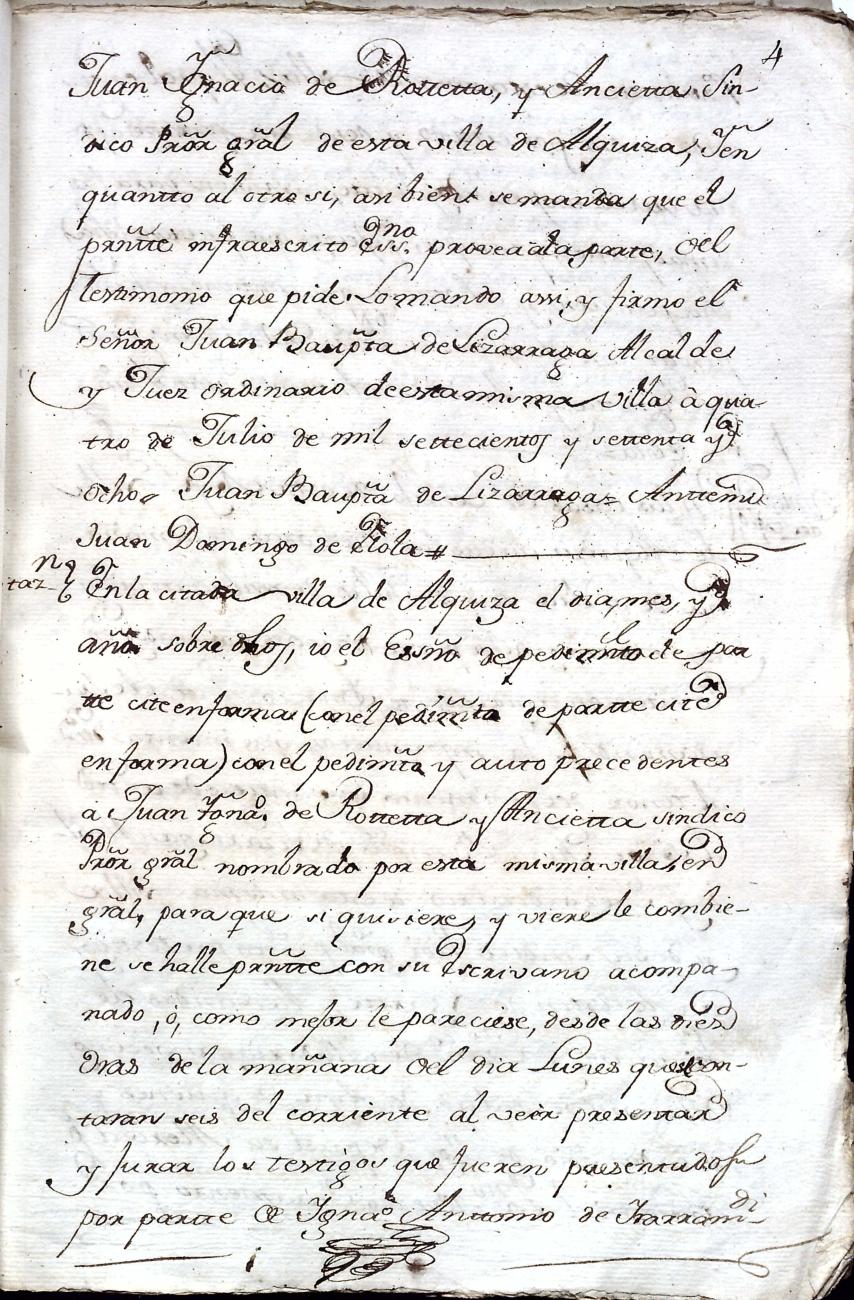 4
Juan Ygnacio de Rottetta, y Ancietta Sin-
dico Prõr grãl de esta villa de Alquiza, Y en
quantto al otro si, asi bien se manda que el
prñtte infraescrito Essno. provea a la parte, del
Testimonio que pide. Lo mando assi, y firmo el
Señor Juan Baupta de Lizarraga Alcalde
y Juez ordinario de esta misma villa à qua-
tro de Julio de mil settecientos y settenta y
ocho= Juan Baupta de Lizarraga= Anttemi
Juan Domingo de Elola #
En la citada villa de Alquiza el dia, mes, y
año sobre dhos, io el Essño de pedimto de par
tte cite en forma (con el pedimto de partte cite
en forma) con el pedimto y auto precedentes
a Juan Ygnaº. de Rottetta y Ancietta sindico
Prõr grãl nombrado por esta misma villa, en
grãl, para que si quisiere, y viere le combie-
ne se halle prñtte con su Escrivano acompa-
nado, ó, como mejor le pareciese, desde las diez
oras de la mañana del dia Lunes que se con-
taran seis del corriente al veer presentar
y jurar los testigos que fueren presentados
por partte de Ygnaº Anttonio de Yrarramdi-